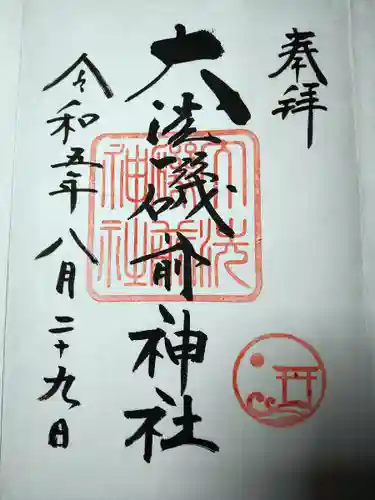 奉拝
大洗磯前神社
令和五年八月二十九日
大洗磯前神社